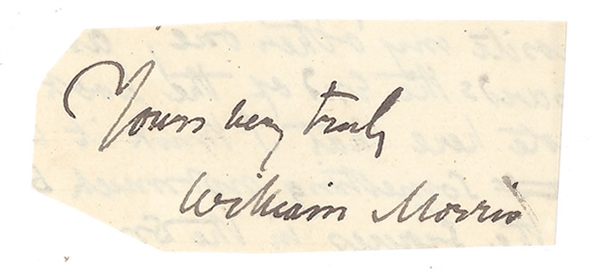 Yours very truly
William Morris